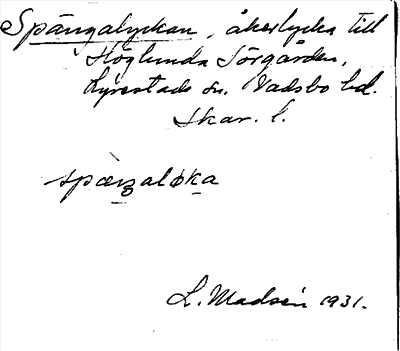 Spångalyckan, åkerlycka till
Höglunda Sörgården,
Lyrestads sn. Vadsbo hd.
Skar. l.
spæŋaløka
L. Madsén 1931.